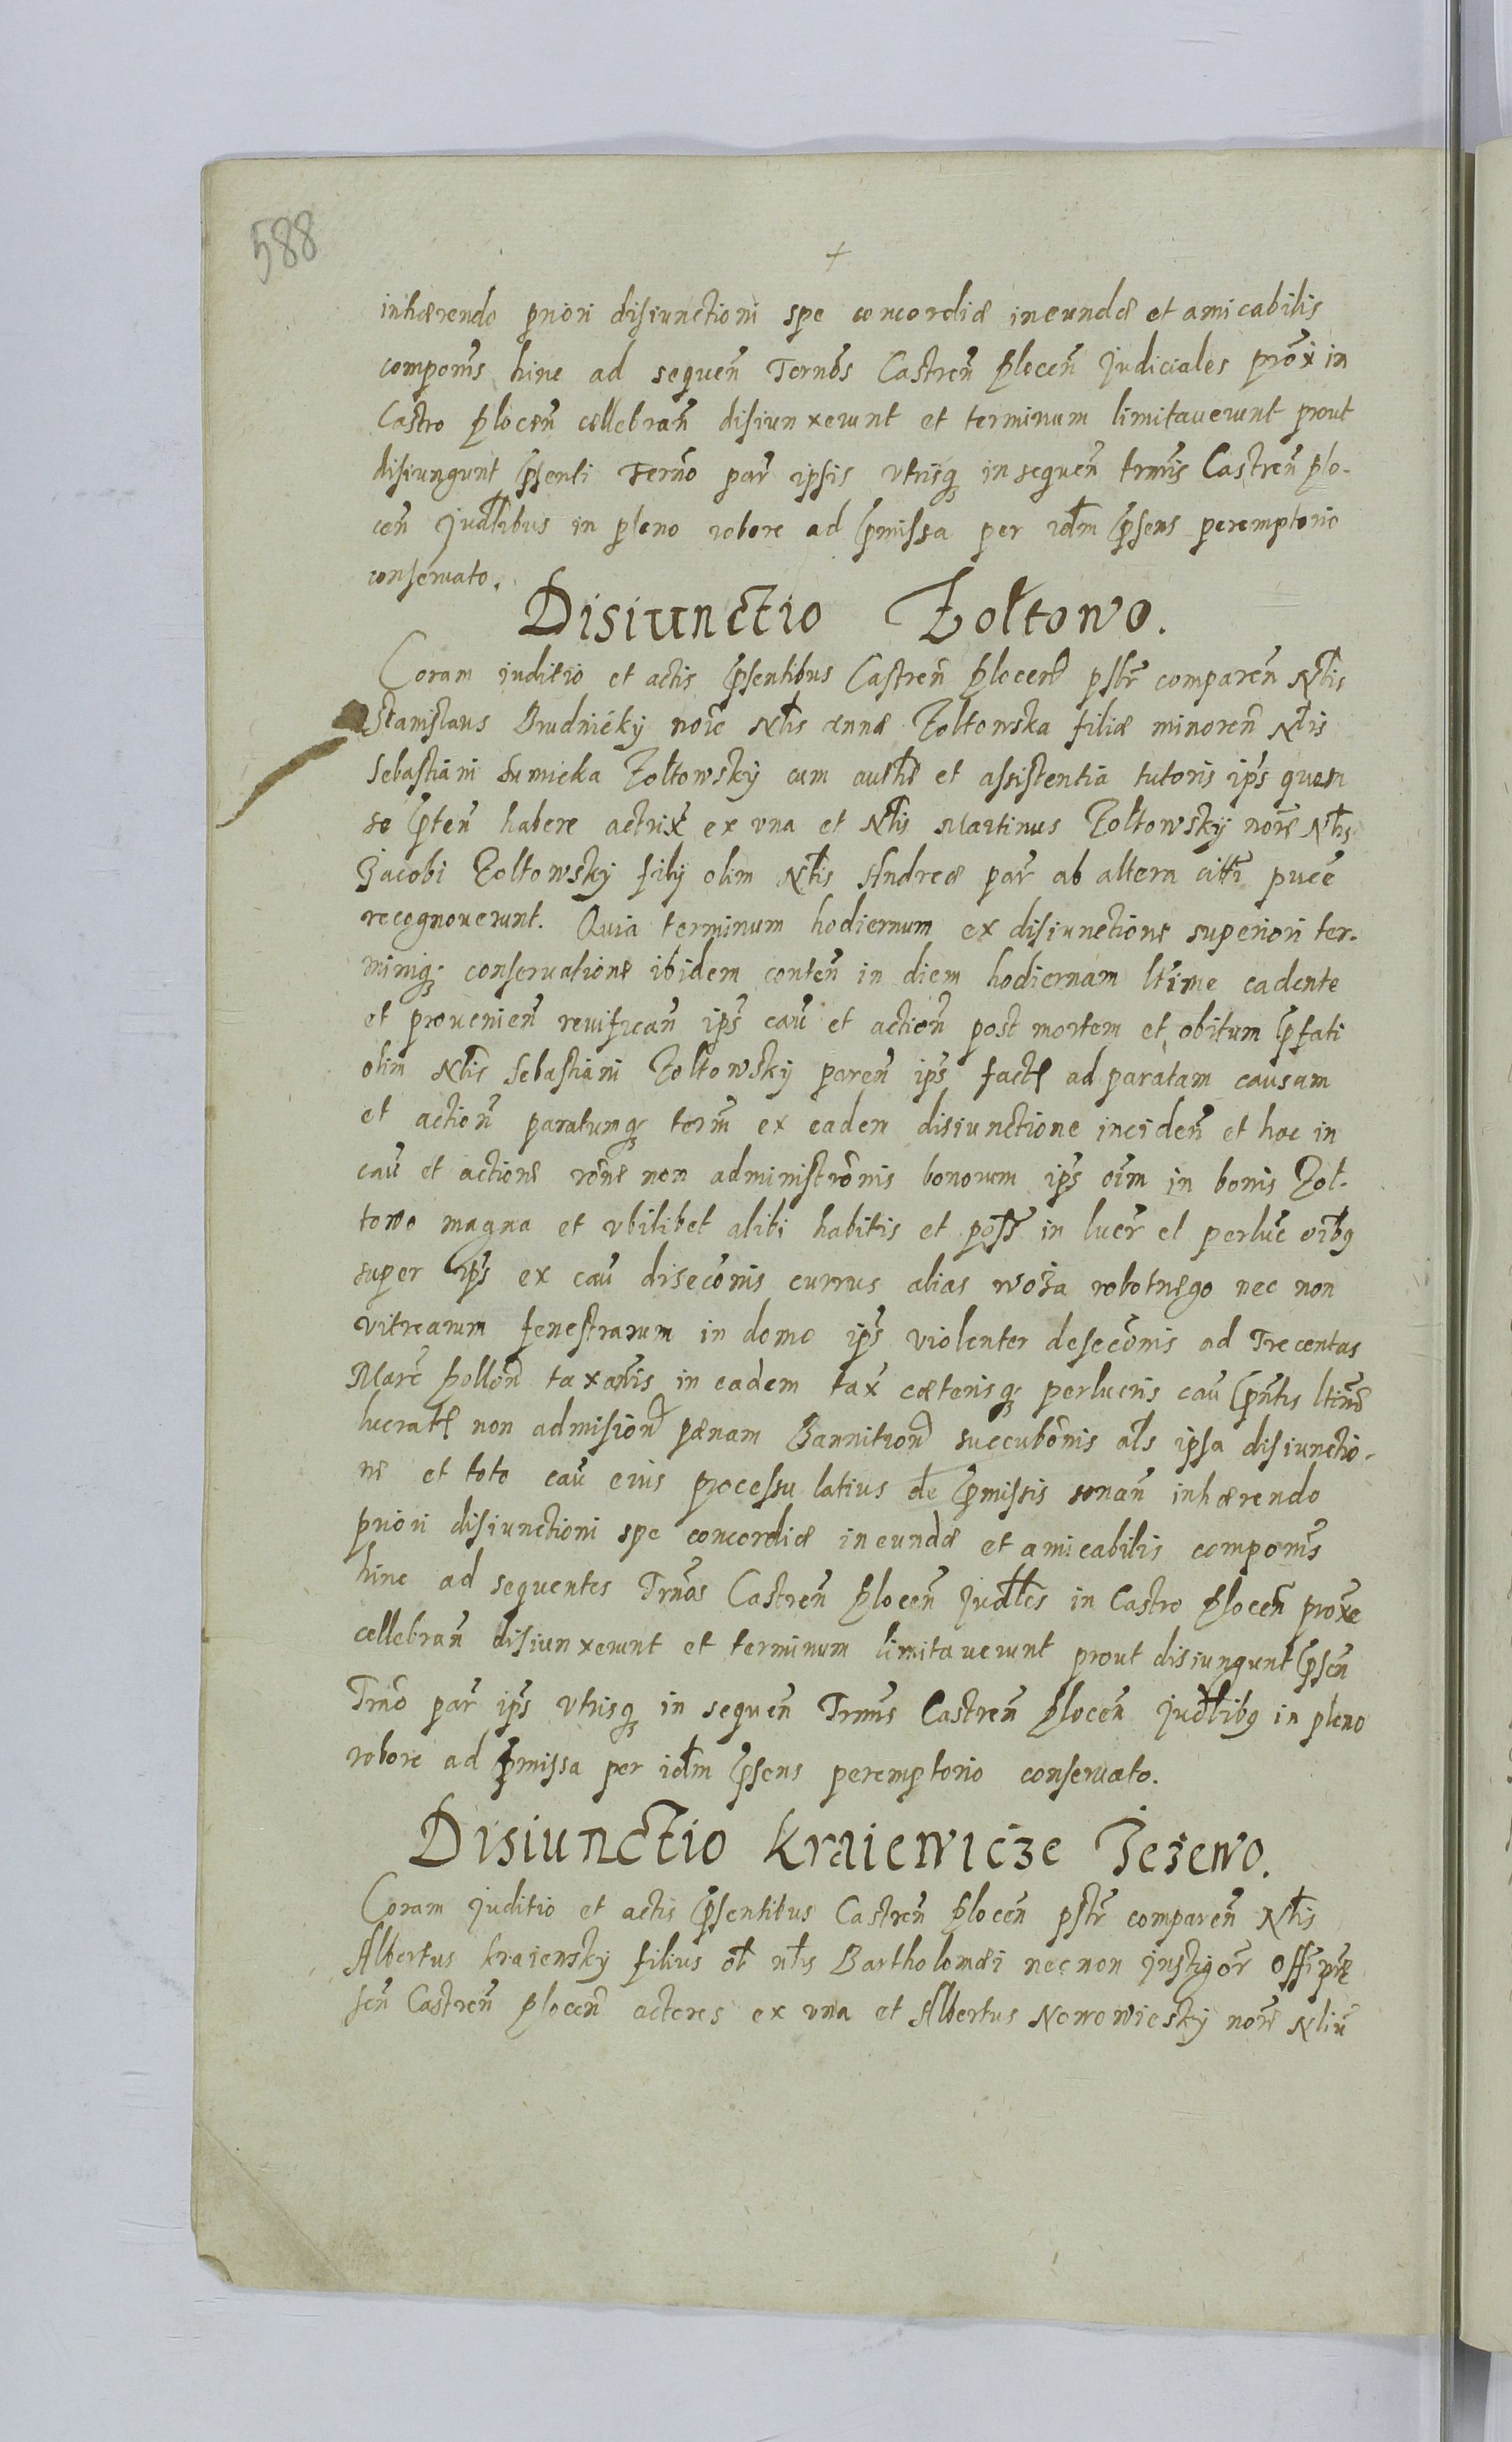 588
inhærendo priori disiunctioni spe concordiæ ineundæ et amicabilis
componis hinc ad sequen Ternos Castren Plocen Judiciales prox in
Castro Plocen cellebran disiunxerunt et terminum limitauerunt prout
disiungunt psenti Terno par ipsis vtrisq in sequen trmis Castren Plo-
cen Judlibus in pleno robore ad pmissa per idm psens peremptorio
conseruato.
Disiunctio Żołtowo.
Coram iuditio et actis psentibus Castren Plocen pslr comparen Nlis
Stanislaus Brudnicky noie Nlis Annæ Zołtowska filiæ minoren Nlis
Sebastiani Zołtowsky cum authe et assistentia tutoris ips quem
se pten habere actrix ex vna et Nlis Martinus Zołtowsky nore Nlis
Jacobi Zołtowsky filij olim Nlis Andreæ par ab altera citti puce
recognouerunt. Quia terminum hodiernum ex disiunctione superiori ter-
miniq conseruatione ibidem conten in diem hodiernam ltime cadente
et prouenien reuifican ips cau et action post mortem et obitum pfati
olim Nlis Sebastiani Zołtowsky paren ips fact ad paratam causam
et action paratumq term ex eadem disiunctione inciden et hoc in
cau et actione rone non administronis bonorum ips oim in bonis Zoł-
towo magna et vbilibet alibi habitis et poss in lucr et perluc oibq
super ips ex cau diseconis currus alias woza robotnego nec non
vitrearum fenestrarum in domo ips violenter deseconis ad Trecentas
Marc Pollon taxanis in eadem tax cæterisq perlucris cau pntis ltime
lucrat non admision pænam Bannition succubonis als ipsa disiunctio-
ne et toto cau eius processu latius de pmissis sonan inhærendo
priori disiunctioni spe concordiæ ineundæ et amicabilis componis
hinc ad sequentes Trnos Castren Plocen Judles in Castro Plocen proxe
cellebran disiunxerunt et terminum limitauerunt prout disiungunt psen
Trno par ips vtrisq in sequen Trmis Castren Plocen Judlibq in pleno
robore ad pmissa per idm psens peremptorio conseruato.
Disiunctio Kraiewicze Jeżewo.
Coram Juditio et actis psentibus Castren Plocen pstr comparen Nlis
Albertus Kraiewsky filius ol nlis Bartholomæi necnon Jnstigor Offi præ
sen Castren Plocen actores ex vna et Albertus Nowowiesky nore Nliu